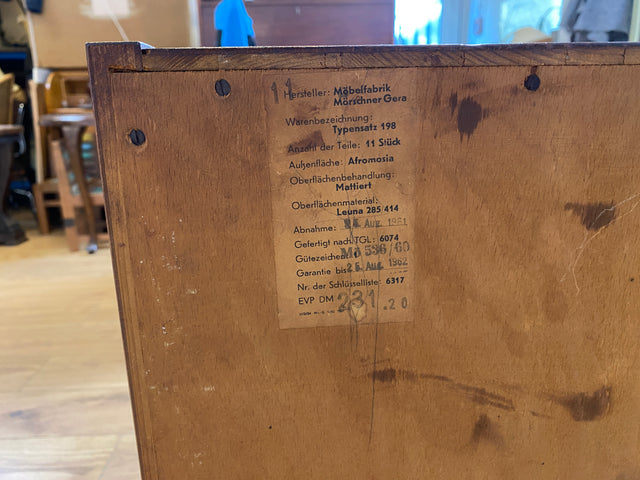 11
Hersteller: Möbelfabrik
Mörschner Gera
Warenbezeichnung:
Typensatz 198
Anzahl der Teile: 11 Stück
Außenfläche: Afromosia
Oberflächenbehandlung:
Mattiert
Oberflächenmaterial:
Leuna 285/414
Abnahme: Aug. 1961
Gefertigt nach TGL: 6074
Gütezeichen: 536/60
Garantie bis 25. Aug. 1962
Nr. der Schlüsselliste: 6317
EVP DM 231.20